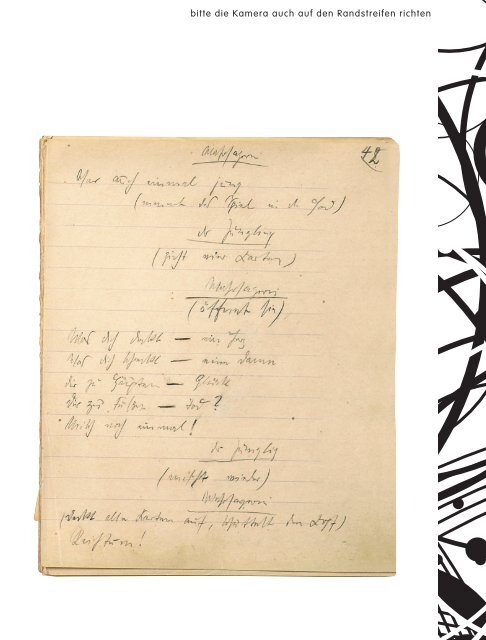 bitte die Kamera auch auf den Randstreifen richten
Wahrsagerin
42
War auch einmal jung
(nimmt das Spiel in die Hand)
der Jüngling
(zieht vier Karten)
Wahrsagerin
(öffnet sie)
Was dich deckt — ein
Was dich schreckt — eine Dame
die zu Häupten — Glück
Die zu Füßen — Tod?
Misch noch einmal!
der Jüngling
(mischt wieder)
Wahrsagerin
(deckt alle Karten auf, schüttelt den Kopf)
Reichtum!